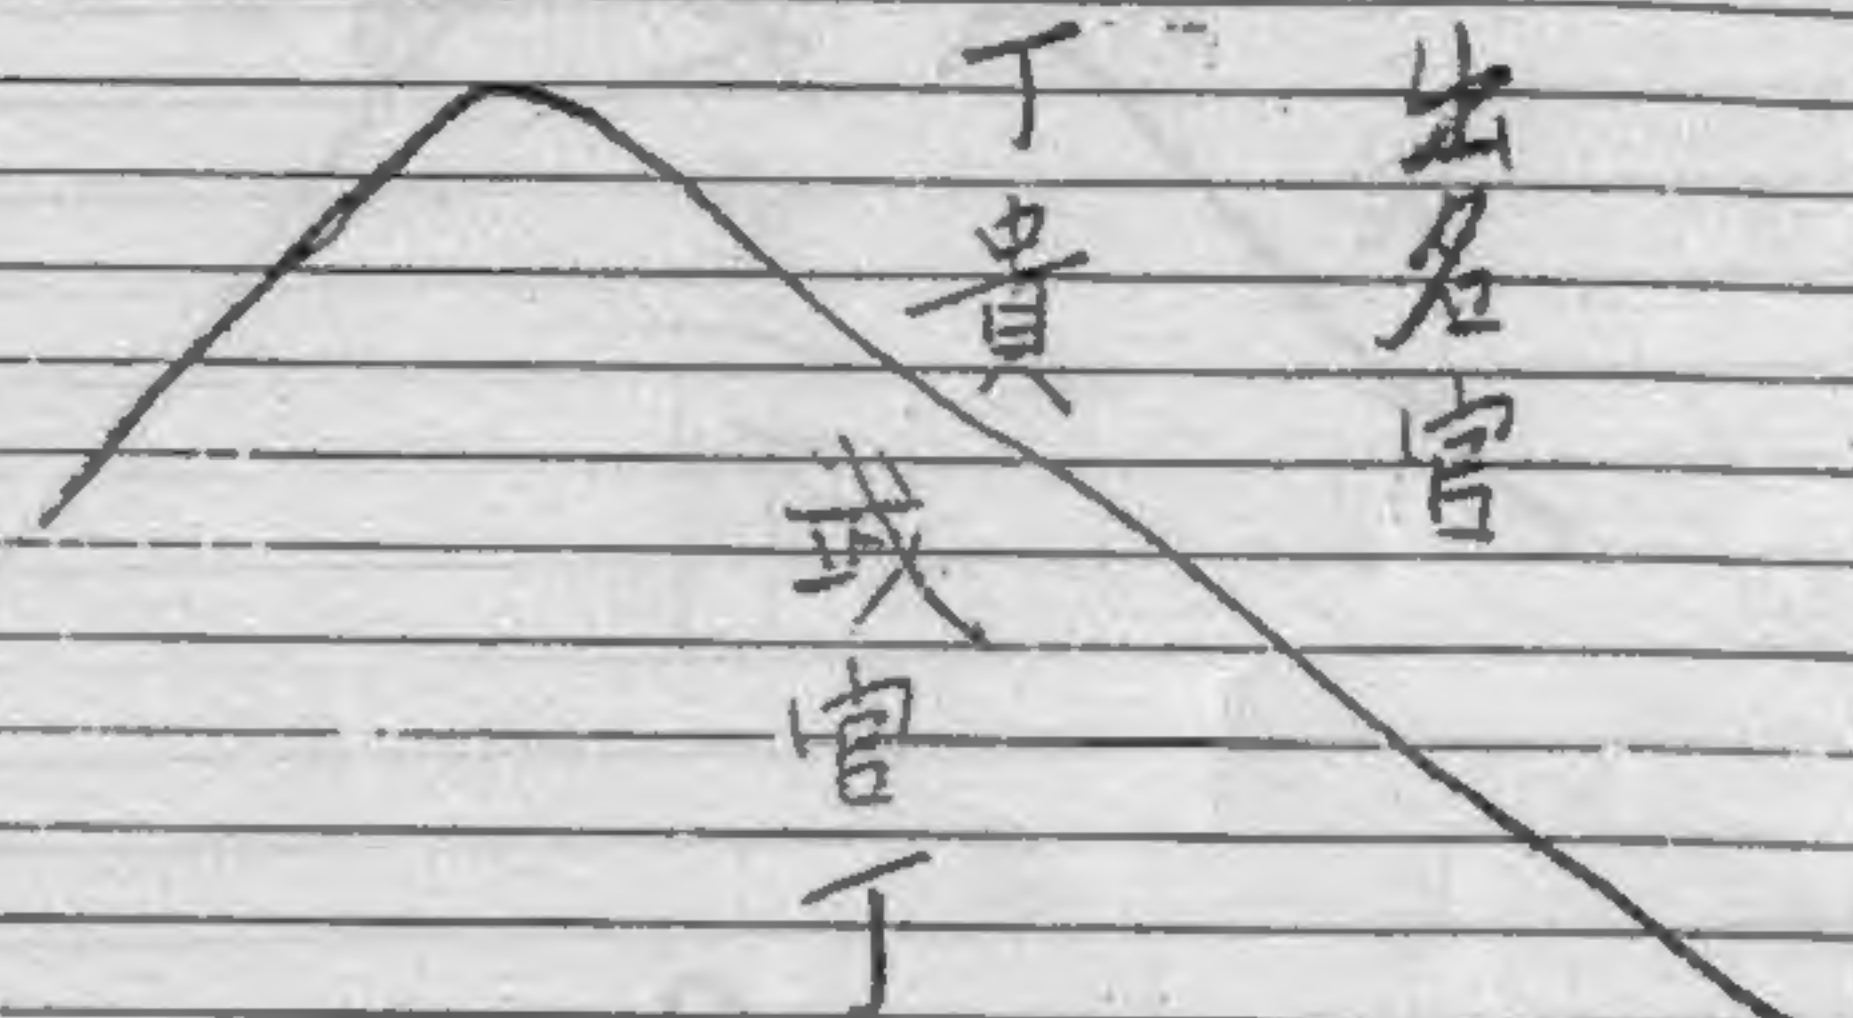 出名官
丁貴
或官丁